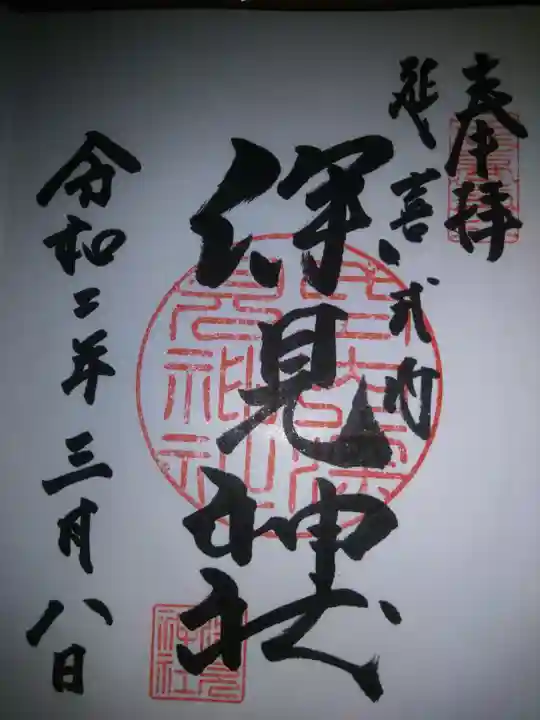 奉拝
延喜式内
深見神社
令和二年三月八日